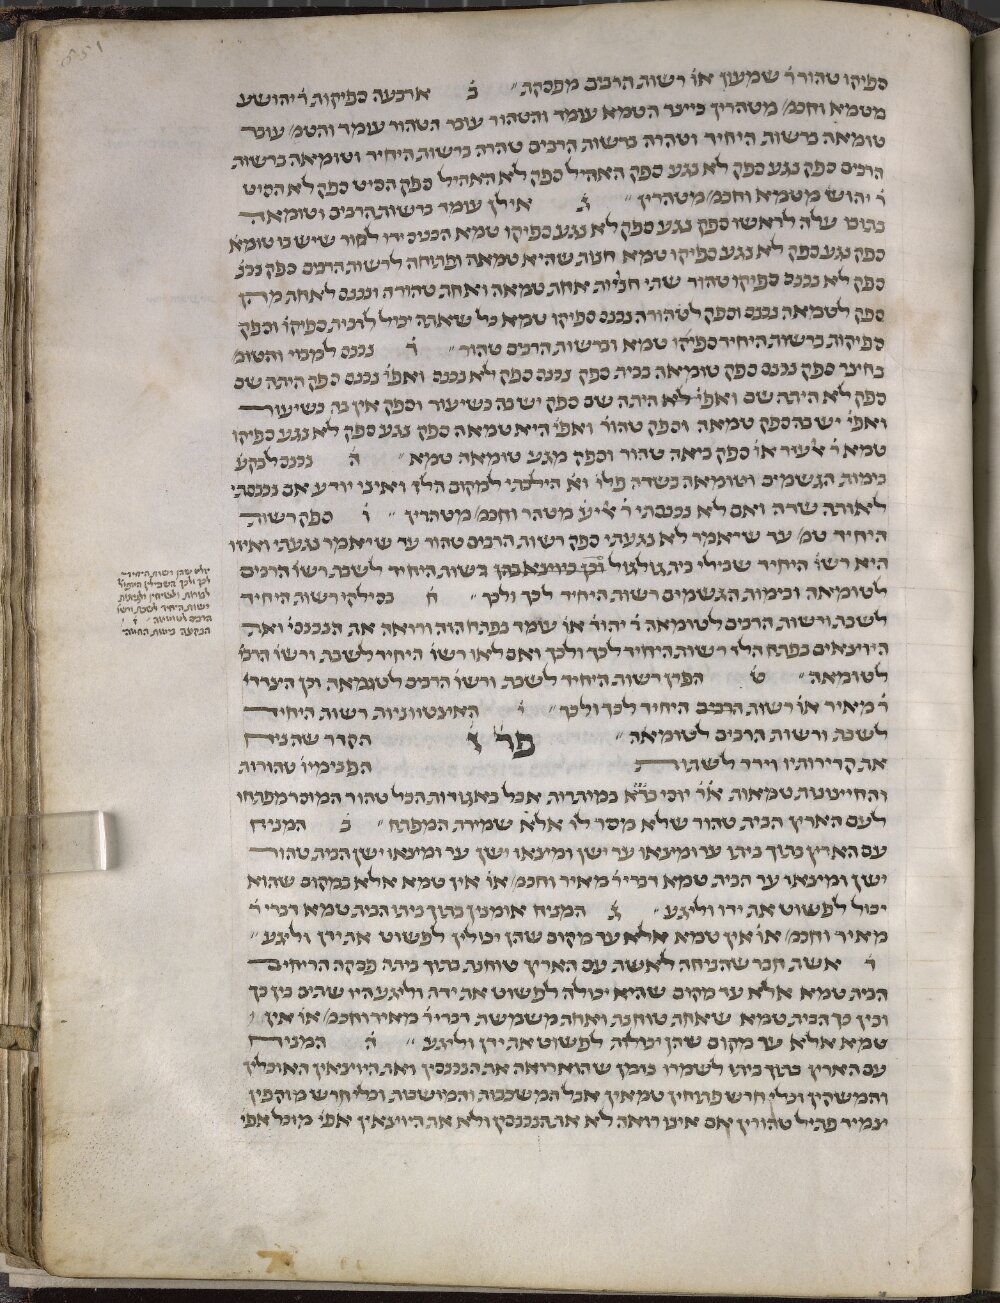 ספיקו טהור ר׳ שמעון או׳ רשות הרבים מפסקת ׳׳ ב̇ ארבעה ספיקות ר׳ יהושע
מטמא וחכמ׳ מטהרין כיצד הטמא עומד והטהור עובר הטהור עומד והטמ׳ עובר
טומאה ברשות היחיד וטהרה ברשות הרבים טהרה ברשות היחיד וטומאה ברשות
הרבים ספק נגע ספק לא נגע ספק האהיל ספק לא האהיל ספק הסיט ספק לא הסיט
ר׳ יהוש׳ מטמא וחכמ׳ מטהרין ׳׳ ג̇ אילן עומד ברשות הרבים וטומאה
בתוכו עלה לראשו ספק נגע ספק לא נגע ספיקו טמא הכניס ידו לחור שיש בו טומא׳
ספק נגע ספק לא נגע ספיקו טמא חנות שהיא טמאה ופתוחה לרשות הרבים ספק נכנ׳
ספק לא נכנס ספיקו טהור שתי חניות אחת טמאה ואחת טהורה ונכנס לאחת מהן
ספק לטמאה נכנס וספק לטהורה נכנס ספיקו טמא כל שאתה יכול לרבות ספיקו׳ וספק
ספיקות ברשות היחיד ספיקו טמא וברשות הרבים טהור ׳׳ ד̇ נכנס למבוי והטומ׳
בחצר ספק נכנס ספק טומאה בבית ספק נכנס ספק לא נכנס ואפי׳ נכנס ספק היתה שם
ספק לא היתה שם ואפי׳ לא היתה שם ספק יש בה כשיעור וספק אין בה כשיעור
ואפי׳ יש בה ספק טמאה וספק טהור׳ ואפי׳ היא טמאה ספק נגע ספק לא נגע ספיקו
טמא ר׳ לעזר או׳ ספק ביאה טהור וספק מגע טומאה טמא ׳׳ ה̇ נכנס לבקע׳
בימות הגשמים וטומאה בשדה פלו׳ וא׳ הילכתי למקום הלז ואיני יודע אם נכנסתי
לאותה שדה ואם לא נכנסתי ר׳ אליע׳ מטהר וחכמ׳ מטהרין ׳׳ ו̇ ספק רשות
היחיד טמ׳ עד שיאמר לא נגעתי ספק רשות הרבים טהור עד שיאמר נגעתי ואיזו
היא רשו׳ היחיד שבילי בית גולגול וכן כיוצא בהן רשות היחיד לשבת רשו׳ הרבים
לטומאה ובימות הגשמים רשות היחיד לכך ולכך ׳׳ ח̇ בסילקי רשות היחיד
לשבת ורשות הרבים לטומאה ר׳ יהוד׳ או׳ עומד בפתח הזה ורואה את הנכנסי׳ ואת
היוצאים בפתח הלז רשות היחיד לכך ולכך ואם לאו רשו׳ היחיד לשבת ורשו׳ הרבי׳
לטומאה ׳׳ ט̇ הפרן רשות היחיד לשבת ורשו׳ הרבים לטומאה וכן הצדדי׳
ר׳ מאיר או׳ רשות הרבים היחיד לכך ולכך ׳׳ י̇ האיצטווניות רשות היחיד
לשבת ורשות הרבים לטומאה ׳׳ פר׳ ז̇ הקדר שהניח
את קדירותיו וירד לשתות הפנימיו׳ טהורות
והחיצונות טמאות א״ר יוסי במ״א במותרות אבל באגודות הכל טהור המוסר מפתחו
לעם הארץ הבית טהור שלא מסר לו אלא שמירת המפתח ׳׳ ב̇ המניח
עם הארץ בתוך ביתו ער ומיצאו ער ישן ומיצאו ישן ער ומיצאו ישן הבית טהור
ישן ומיצאו ער הבית טמא דברי ר׳ מאיר וחכמ׳ או׳ אין טמא אלא במקום שהוא
יכול לפשוט את ידו וליגע ׳׳ ג̇ המניח אומנין בתוך ביתו הבית טמא דברי ר׳
מאיר וחכמ׳ או׳ אין טמא אלא עד מקום שהן יכולין לפשוט את ידן וליגע ׳׳
ד̇ אשת חבר שהניחה לאשת עם הארץ טוחנת בתוך ביתה פסקה הריחים
הבית טמא אלא עד מקום שהיא יכולה לפשוט את ידה וליגע היו שתים בין כך
ובין כך הבית טמא שאחת טוחנת ואחת משמשת דברי ר׳ מאיר וחכמ׳ או׳ אין
טמא אלא עד מקום שהן יכולות לפשוט את ידן וליגע ׳׳ ה̇ המניח
עם הארץ בתוך ביתו לשמרו בזמן שהוא רואה את הנכנסין ואת היוצאין האוכלין
והמשקין וכלי חרש פתוחין טמאין אבל המשכבות והמושבות וכלי חרש מוקפין
צמיד פתיל טהורין אם אינו רואה לא את הנכנסין ולא את היוצאין אפי׳ מובל אפי׳
לכך ולכך השבילין
רשות היחיד לשבת ורשו׳
הרבים לטומאה ׳׳ ז̇
הבקעה בימות החמה